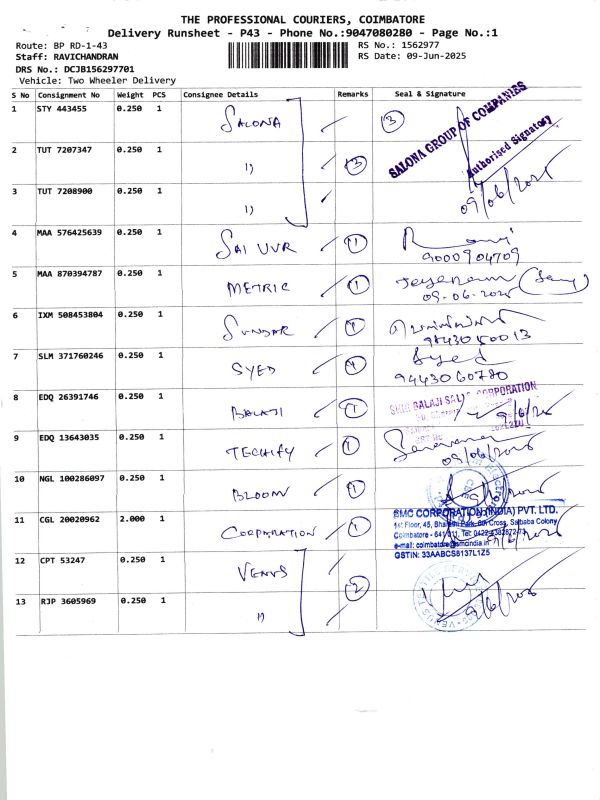 THE PROFESSIONAL COURIERS, COIMBATORE
Delivery Runsheet - P43 - Phone No.:9047080280 - Page No.:1
Route: BP RD-1-43
RS No.: 1562977
Staff: RAVICHANDRAN
RS Date: 09-Jun-2025
DRS No.: DCJB156297701
Vehicle: Two Wheeler Delivery
S No Consignment No Weight PCS Consignee Details Remarks Seal & Signature
1 STY 443455 0.250 1 SALONA 3 SALONA GROUP OF COMPANIES
Authorised Signatory
2 TUT 7207347 0.250 1 11 3
3 TUT 7208900 0.250 1 11 09/06/2025
4 MAA 576425639 0.250 1 SAI UVR 1
9000904709
5 MAA 870394787 0.250 1 METRIC 1 Jeyaram
09-06-2025
6 IXM 508453804 0.250 1 SUNDAR 1
9443050013
7 SLM 371760246 0.250 1 SYED 1 Syed
9443060780
8 EDQ 26391746 0.250 1 BALAJI 1 SHRI BALAJI SALES CORPORATION
9/6/25
9 EDQ 13643035 0.250 1 TECHIFY 1 Saravanan
09/06/2025
10 NGL 100286097 0.250 1 BLOOM 1
11 CGL 20020962 2.000 1 CORPORATION 1 SMC CORPORATION (INDIA) PVT. LTD.
1st Floor, 45, Bharathi Park, 6th Cross, Saibaba Colony
Coimbatore - 641 011, Tel: 0422-4382872-73
e-mail: coimbatore@smcindia.in
GSTIN: 33AABCS8137L1Z5
12 CPT 53247 0.250 1 VENUS 2
13 RJP 3605969 0.250 1 11 9/6/2025